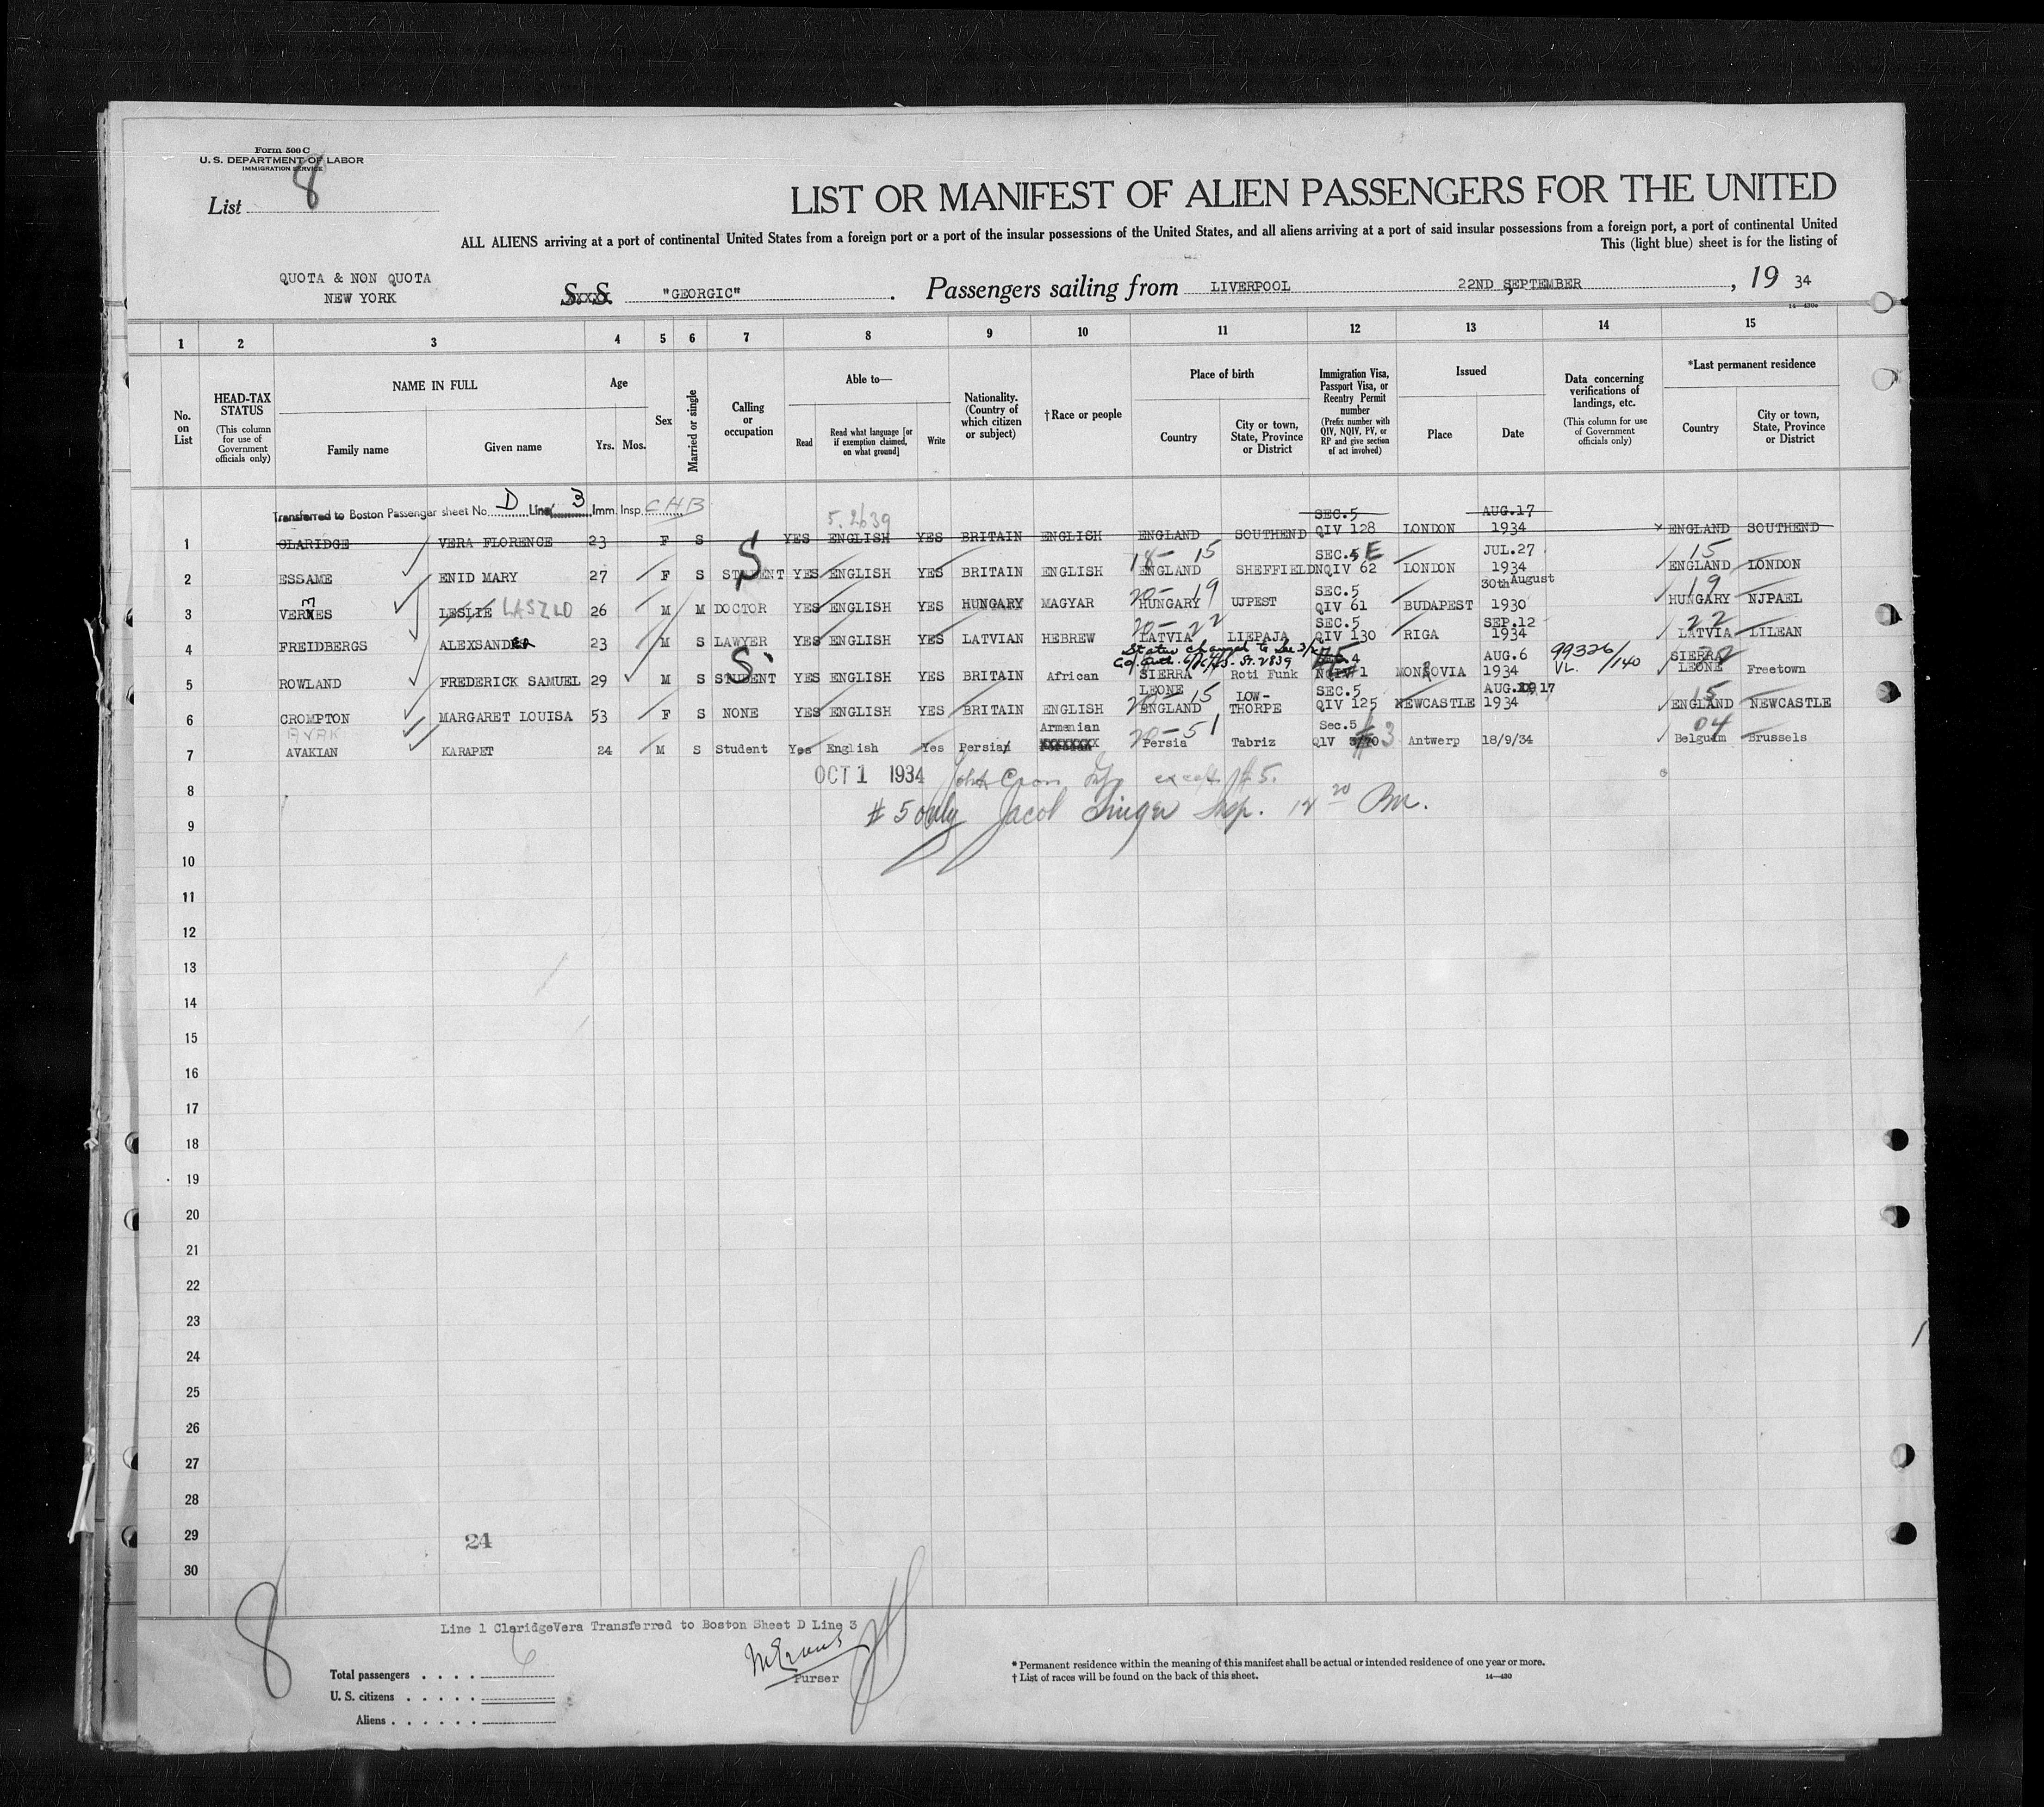 Form 500 C
U. S. DEPARTMENT OF LABOR
IMMIGRATION SERVICE
List 8
LIST OR MANIFEST OF ALIEN PASSENGERS FOR THE UNITED
ALL ALIENS arriving at a port of continental United States from a foreign port or a port of the insular possessions of the United States, and all aliens arriving at a port of said insular possessions from a foreign port, a port of continental United
This (light blue) sheet is for the listing of
QUOTA & NON QUOTA
NEW YORK
S. S. "GEORGIC" . Passengers sailing from LIVERPOOL 22ND SEPTEMBER , 19 34
14—430a
1 2 3 4 5 6 7 8 9 10 11 12 13 14 15
No. on List
HEAD-TAX STATUS (This column for use of Government officials only)
NAME IN FULL
Family name
Given name
Age
Yrs. Mos.
Sex
Married or single
Calling or occupation
Able to—
Read
Read what language [or if exemption claimed, on what ground]
Write
Nationality. (Country of which citizen or subject)
† Race or people
Place of birth
Country
City or town, State, Province or District
Immigration Visa, Passport Visa, or Reentry Permit number (Prefix number with QIV, NQIV, PV, or RP and give section of act involved)
Issued
Place
Date
Data concerning verifications of landings, etc. (This column for use of Government officials only)
*Last permanent residence
Country
City or town, State, Province or District
Transferred to Boston Passenger sheet No. D Line 3 Imm. Insp. CHB
5.2639
SEC.5 AUG.17
1 CLARIDGE VERA FLORENCE 23 F S YES ENGLISH YES BRITAIN ENGLISH ENGLAND SOUTHEND QIV 128 LONDON 1934 x ENGLAND SOUTHEND
S 18- 15 SEC.5 E JUL.27 15
2 ESSAME ENID MARY 27 F S STUDENT YES ENGLISH YES BRITAIN ENGLISH ENGLAND SHEFFIELD NQIV 62 LONDON 1934 ENGLAND LONDON
20- 19 SEC.5 30th August 19
3 VERMES LESLIE LASZLO 26 M M DOCTOR YES ENGLISH YES HUNGARY MAGYAR HUNGARY UJPEST QIV 61 BUDAPEST 1930 HUNGARY NJPAEL
20- 22 SEC.5 SEP.12 22
4 FREIDBERGS ALEXSANDER 23 M S LAWYER YES ENGLISH YES LATVIAN HEBREW LATVIA LIEPAJA QIV 130 RIGA 1934 LATVIA LILEAN
S 4 AUG.6 99326/140 SIERRA
5 ROWLAND FREDERICK SAMUEL 29 M S STUDENT YES ENGLISH YES BRITAIN African SIERRA LEONE Roti Funk 1 MONROVIA 1934 VL. LEONE Freetown
20- 15 SEC.5 AUG. 17 15
6 CROMPTON MARGARET LOUISA 53 F S NONE YES ENGLISH YES BRITAIN ENGLISH ENGLAND LOW-THORPE QIV 125 NEWCASTLE 1934 ENGLAND NEWCASTLE
AVAK Armenian 20-51 Sec.5 04
7 AVAKIAN KARAPET 24 M S Student Yes English Yes Persian Persia Tabriz QIV #3 Antwerp 18/9/34 Belguim Brussels
OCT 1 1934 except #5.
8
# 5 only Jacob Singer Insp.
9
10
11
12
13
14
15
16
17
18
19
20
21
22
23
24
25
26
27
28
29
24
30
8
Line 1 ClaridgeVera Transferred to Boston Sheet D Line 3
Total passengers . . . . 6
U. S. citizens . . . . .
Aliens . . . . . .
Purser
* Permanent residence within the meaning of this manifest shall be actual or intended residence of one year or more.
† List of races will be found on the back of this sheet.
14—430